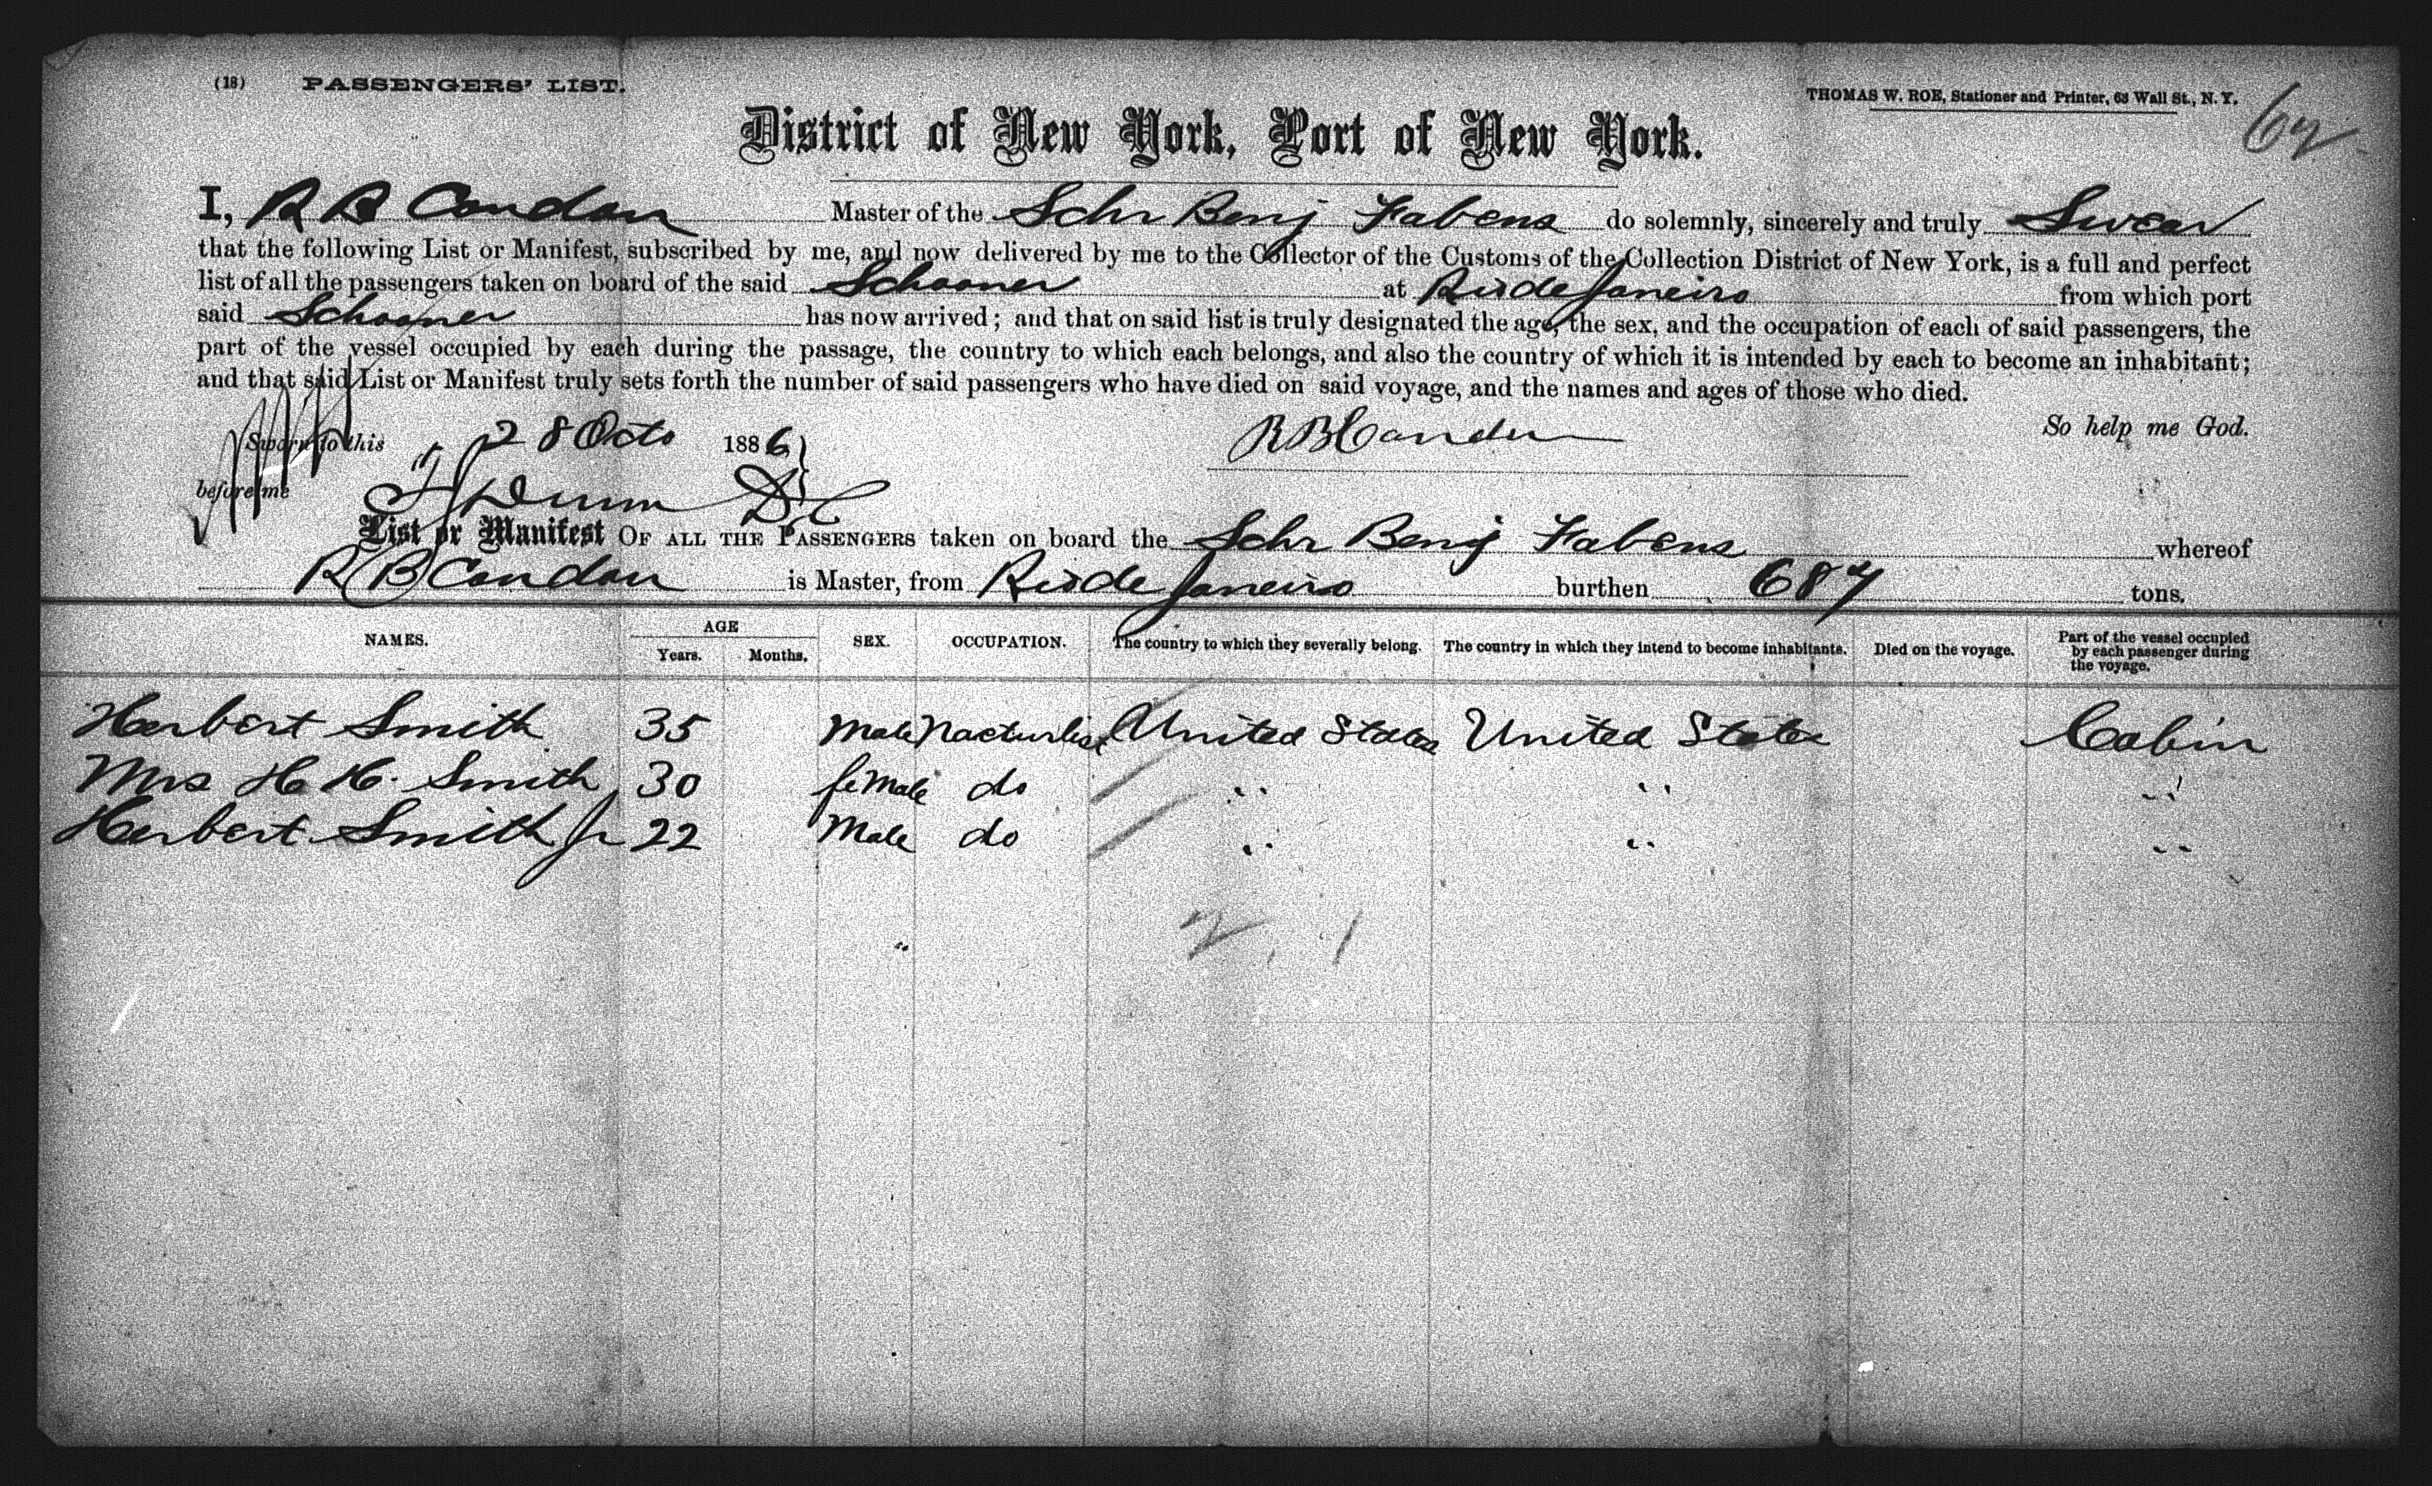 (18) PASSENGERS' LIST.
THOMAS W. ROE, Stationer and Printer, 63 Wall St., N. Y.
62
District of New York, Port of New York.
I, R B Condon Master of the Schr Benj Fabens do solemnly, sincerely and truly Swear
that the following List or Manifest, subscribed by me, and now delivered by me to the Collector of the Customs of the Collection District of New York, is a full and perfect
list of all the passengers taken on board of the said Schooner at Rio de Janeiro from which port
said Schooner has now arrived; and that on said list is truly designated the age, the sex, and the occupation of each of said passengers, the
part of the vessel occupied by each during the passage, the country to which each belongs, and also the country of which it is intended by each to become an inhabitant;
and that said List or Manifest truly sets forth the number of said passengers who have died on said voyage, and the names and ages of those who died.
Sworn to this 28 Octo 1886 R B Condon So help me God.
before me Dunn D C
List or Manifest OF ALL THE PASSENGERS taken on board the Schr Benj Fabens whereof
R B Condon is Master, from Rio de Janeiro burthen 687 tons.
NAMES. AGE Years. Months. SEX. OCCUPATION. The country to which they severally belong. The country in which they intend to become inhabitants. Died on the voyage. Part of the vessel occupied by each passenger during the voyage.
Herbert Smith 35 Male Nacturlist United States United States Cabin
Mrs H H. Smith 30 female do " " "
Herbert Smith Jr 22 Male do " " "
2, 1